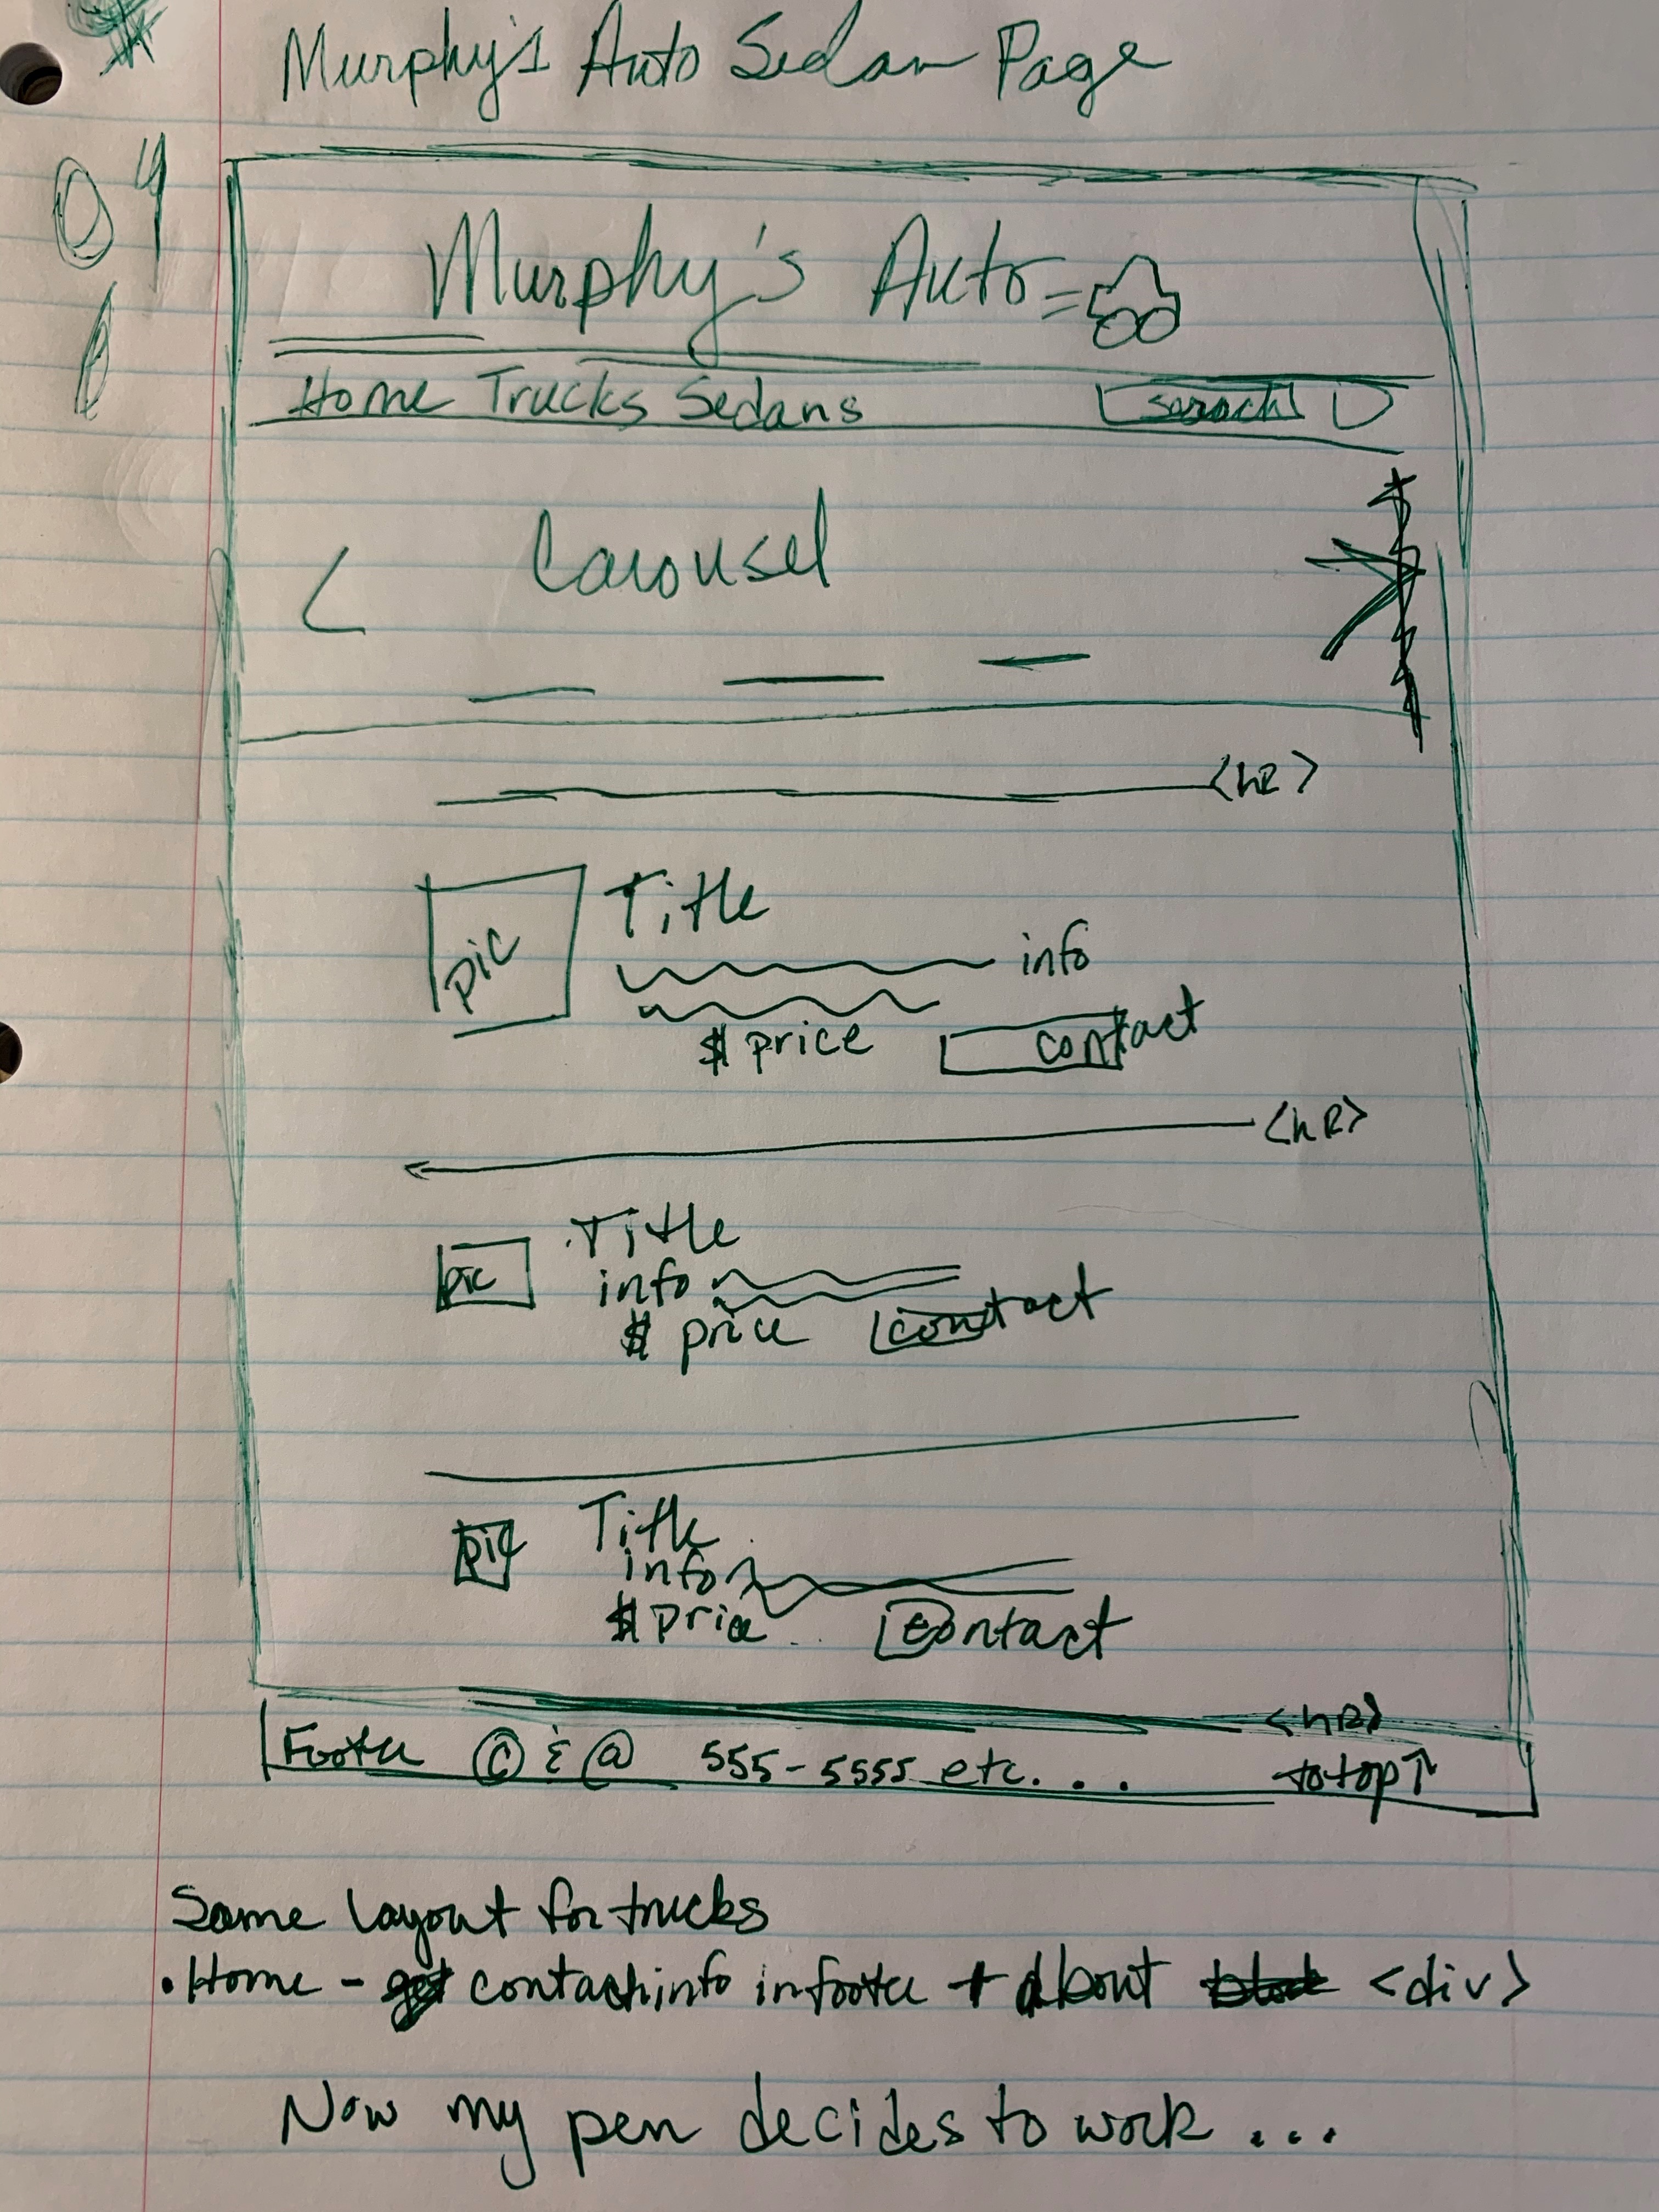 Murphy's Auto Sedan Page
Murphy's Auto
Home Trucks Sedans search
Carousel
<hR>
Title
pic
info
$ price contact
<hR>
Title
pic info
$ price contact
Title
pic
info
$ price contact
<hR>
Footer © & @ 555-5555 etc... to top ↑
Same layout for trucks
• Home - contact info in footer + About <div>
Now my pen decides to work ...